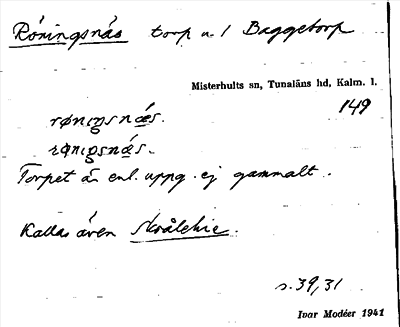 Röningsnäs torp u. 1 Baggetorp
Misterhults sn, Tunaläns hd, Kalm. l.
149
rønıŋsnǽs.
rönıŋsnǽs.
Torpet är enl. uppg. ej gammalt.
Kallas även
s. 39, 31
Ivar Modéer 1941